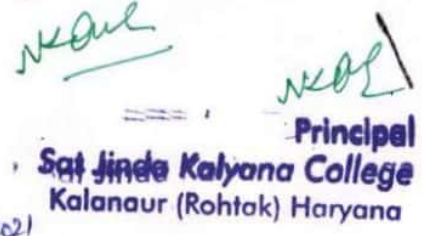 Principal
Sat Jinda Kalyana College
Kalanaur (Rohtak) Haryana
021